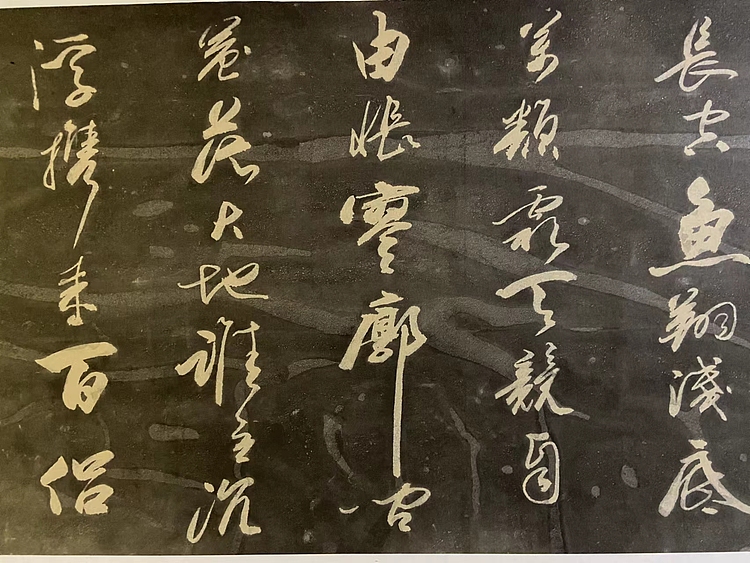 長空魚翔淺底
萬類霜天競自
由悵寥廓問
蒼茫大地誰主沉
浮攜來百侶